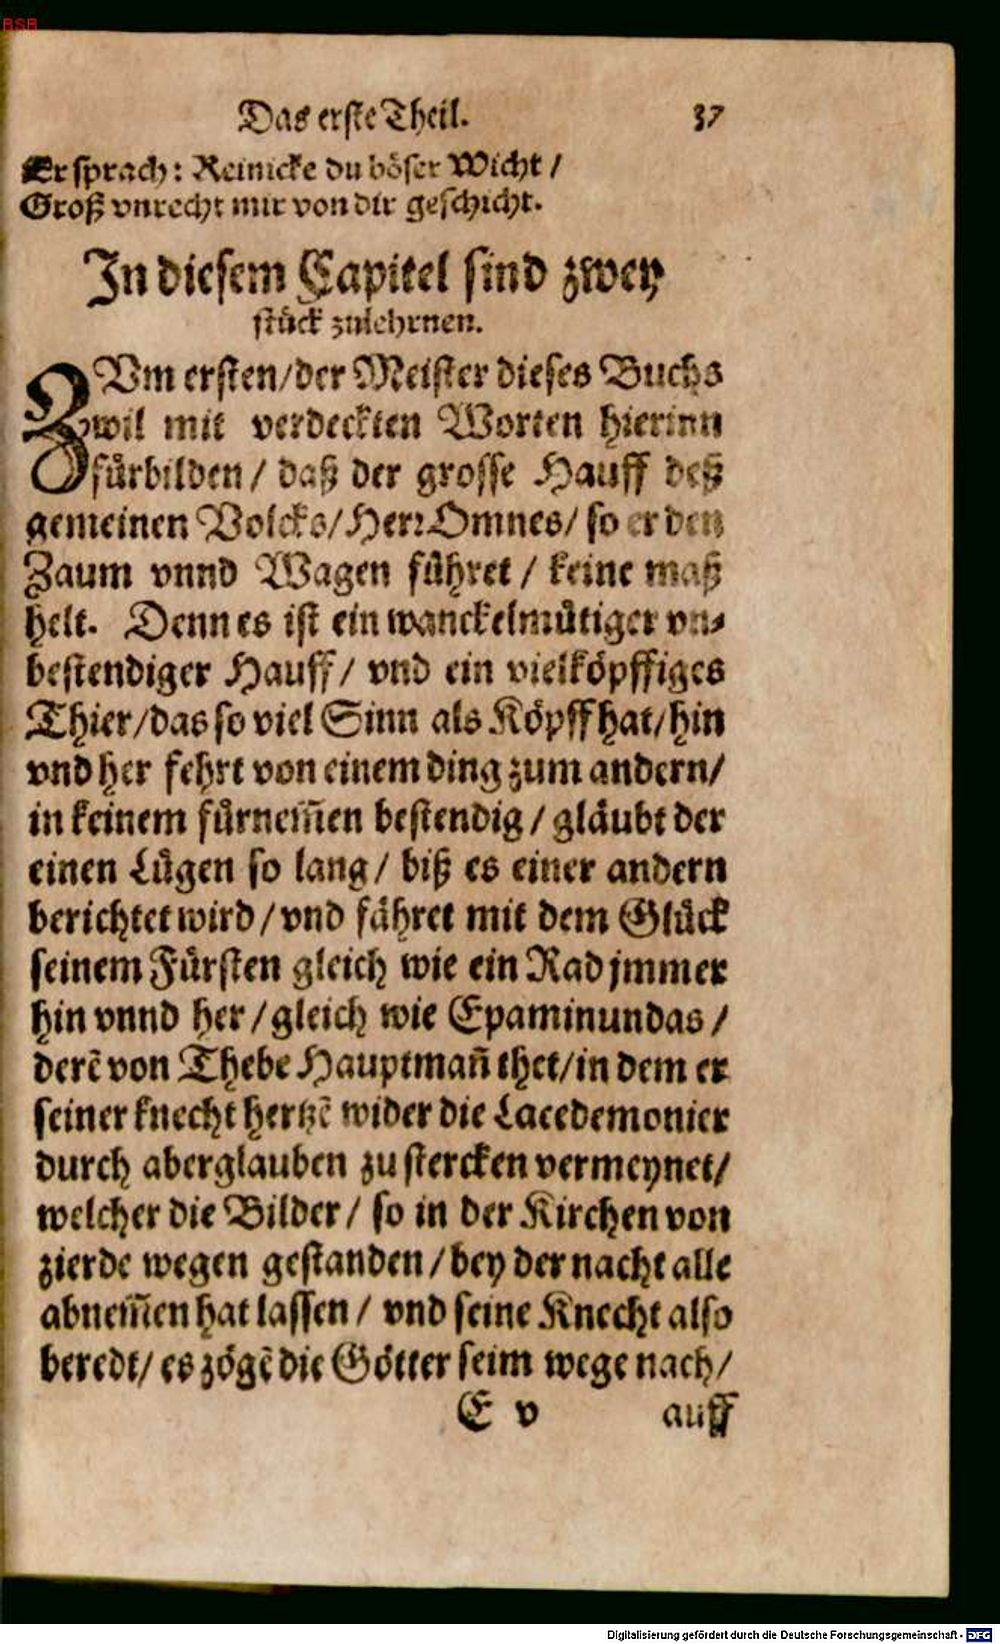 BSB
Das erste Theil. 37
Er sprach: Reinicke du böser Wicht /
Groß vnrecht mir von dir geschicht.
In diesem Capitel sind zwey
stück zulehrnen.
ZVm ersten/der Meister dieses Buchs
wil mit verdeckten Worten hierinn
fürbilden / daß der grosse Hauff deß
gemeinen Volcks/Herr Omnes/ so er den
Zaum vnnd Wagen führet / keine maß
helt. Denn es ist ein wanckelmütiger vn-
bestendiger Hauff / vnd ein vielköpffiges
Thier/das so viel Sinn als Köpff hat/hin
vnd her fehrt von einem ding zum andern/
in keinem fürnem̃en bestendig / gläubt der
einen Lügen so lang / biß es einer andern
berichtet wird / vnd fähret mit dem Glück
seinem Fürsten gleich wie ein Rad jmmer
hin vnnd her / gleich wie Epaminundas /
derẽ von Thebe Hauptmañ thet/in dem er
seiner knecht hertzẽ wider die Lacedemonier
durch aberglauben zu stercken vermeynet/
welcher die Bilder / so in der Kirchen von
zierde wegen gestanden / bey der nacht alle
abnem̃en hat lassen / vnd seine Knecht also
beredt/ es zögẽ die Götter seim wege nach/
E v auff
Digitalisierung gefördert durch die Deutsche Forschungsgemeinschaft - DFG